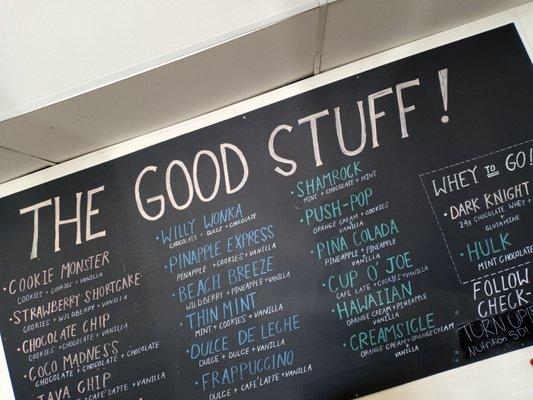 THE GOOD STUFF!
• COOKIE MONSTER
COOKIES + COOKIES + VANILLA
• STRAWBERRY SHORTCAKE
COOKIES + WILDBERRY + VANILLA
• CHOCOLATE CHIP
COOKIES + CHOCOLATE + VANILLA
• COCO MADNESS
CHOCOLATE + CHOCOLATE + CHOCOLATE
JAVA CHIP
+ CAFÉ LATTE + VANILLA
• WILLY WONKA
CHOCOLATE + DULCE + CHOCOLATE
• PINAPPLE EXPRESS
PINAPPLE + COOKIES + VANILLA
• BEACH BREEZE
WILDBERRY + PINEAPPLE + VANILLA
• THIN MINT
MINT + COOKIES + VANILLA
• DULCE DE LECHE
DULCE + DULCE + VANILLA
• FRAPPUCCINO
DULCE + CAFÉ LATTE + VANILLA
• SHAMROCK
MINT + CHOCOLATE + MINT
• PUSH-POP
ORANGE CREAM + COOKIES
VANILLA
• PINA COLADA
PINEAPPLE + PINEAPPLE
VANILLA
• CUP O' JOE
CAFE LATTE + COOKIES + VANILLA
• HAWAIIAN
ORANGE CREAM + PINEAPPLE
VANILLA
• CREAMSICLE
ORANGE CREAM + ORANGE CREAM
VANILLA
WHEY TO GO!
• DARK KNIGHT
24g CHOCOLATE WHEY +
GLUTAMINE
• HULK
MINT CHOCOLATE
FOLLOW
CHECK-
TURN UP!
Nutrition